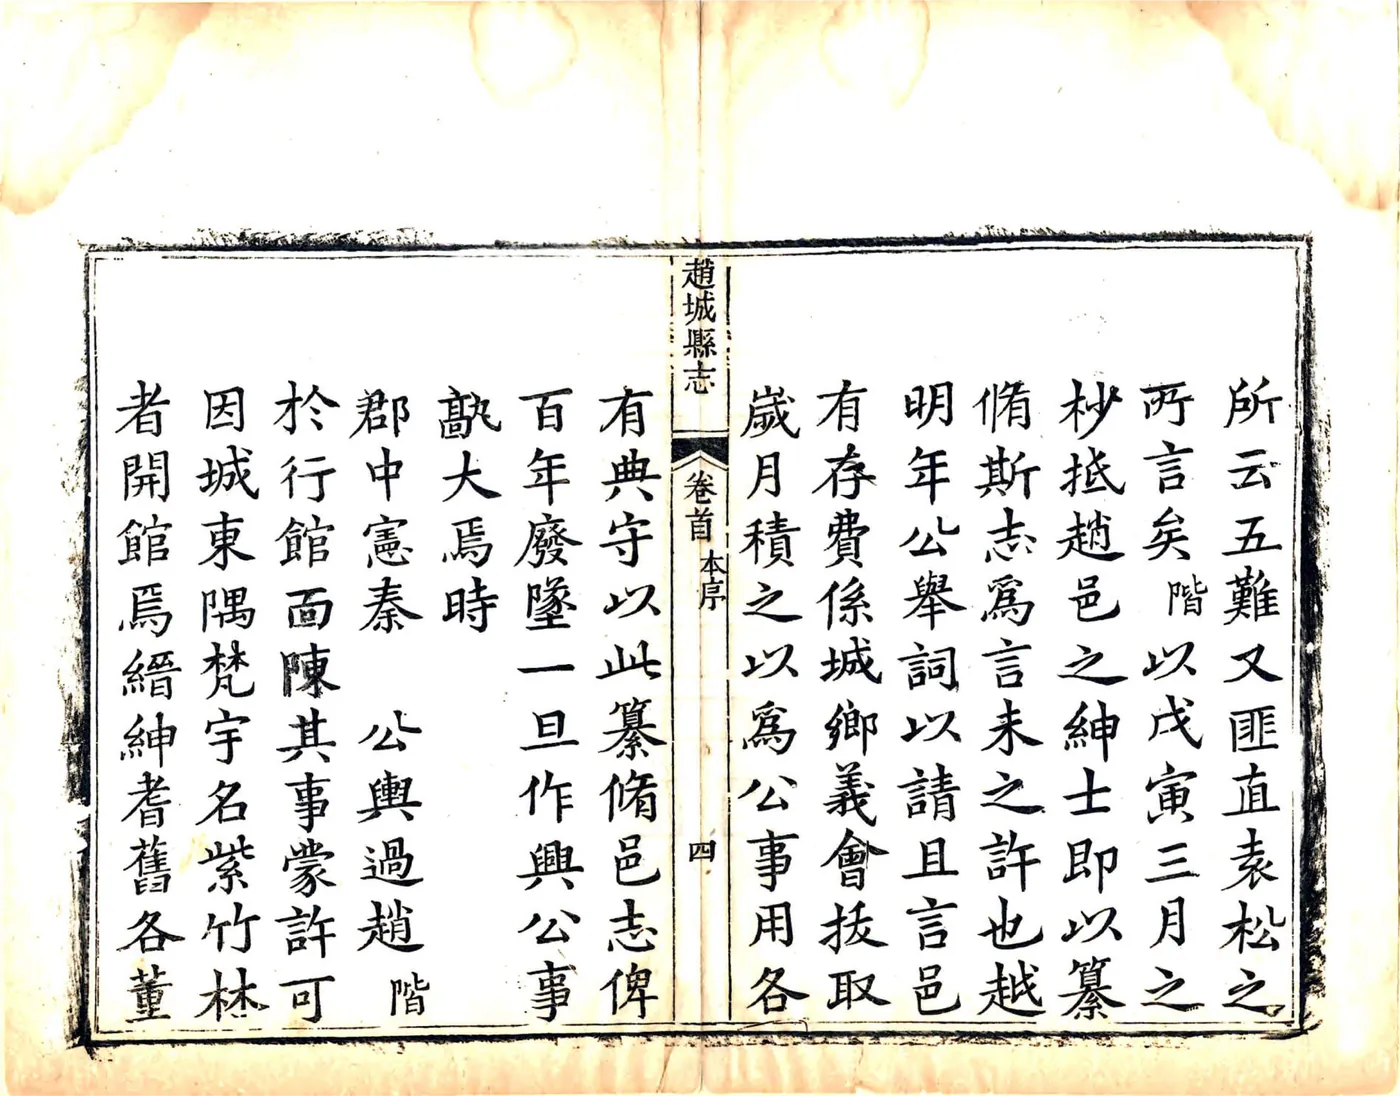 所云五難又匪直袁松之
所言矣階以戊寅三月之
杪抵趙邑之紳士即以纂
脩斯志爲言未之許也越
明年公舉詞以請且言邑
有存費係城鄉義會拔取
歲月積之以爲公事用各
趙城縣志
卷首
本序
四
有典守以此纂脩邑志俾
百年廢墜一旦作興公事
孰大焉時
郡中憲秦 公輿過趙階
於行館面陳其事蒙許可
因城東隅梵宇名紫竹林
者開館焉縉紳耆舊各董